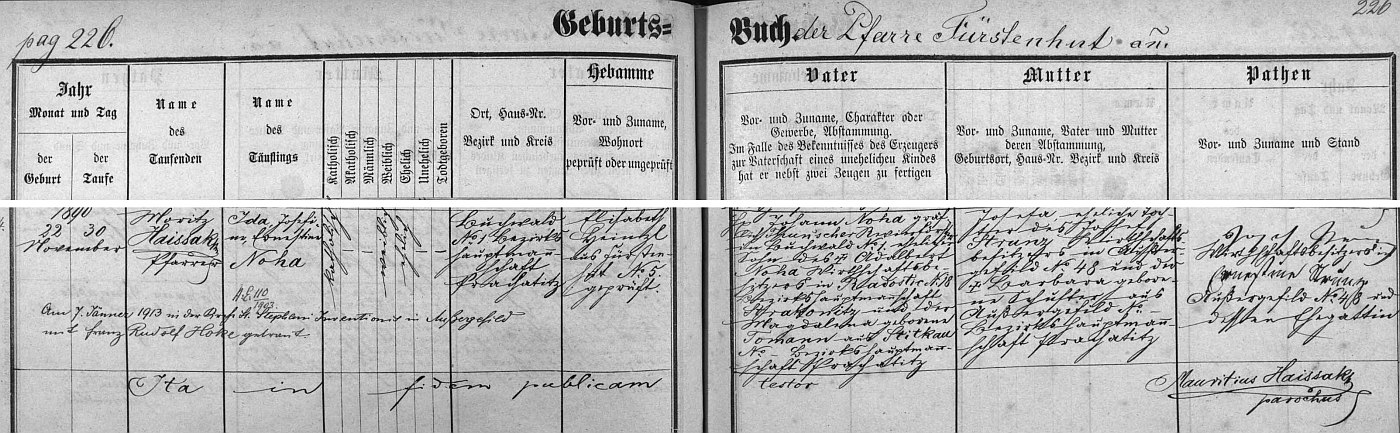 pag 226.
Geburts=
Buch der Pfarre Fürstenhut an.
226
Jahr
Monat und Tag
der Geburt
der Taufe
Name
des
Taufenden
Name
des
Täuflings
Katholisch
Akatholisch
Männlich
Weiblich
Ehelich
Unehelich
Todtgeboren
Ort, Haus-Nr.
Bezirk und Kreis
Hebamme
Vor- und Zuname,
Wohnort
geprüft oder ungeprüft
Vater
Vor- und Zuname, Charakter oder
Gewerbe, Abstammung.
Im Falle des Bekenntnisses des Erzeugers
zur Vaterschaft eines unehelichen Kindes
hat er nebst zwei Zeugen zu fertigen
Mutter
Vor- und Zuname, Vater und Mutter
deren Abstammung,
Geburtsort, Haus-Nr. Bezirk und Kreis
Pathen
Vor- und Zuname und Stand
1890
22 30
November
Moritz
Haissakh
Pfarrer
Ida, Josefi-
ne, Ernestine
Noha
katholisch
weiblich
ehelich
Buchwald
No 1 Bezirks-
hauptman-
schaft
Prachatitz
Elisabeth
Heintzl
aus Fürsten-
hut No 5.
geprüft
Johann Noha gräf-
lich Thunischer Revierförster
in Buchwald No 1. ehelicher
Sohn des † Adalbert
Noha Wirthschaftsbe-
sitzers in Radostic No 18
Bezirkshauptmannschaft
Strakonitz und der
Magdalena geborenen
Tomann aus Stitkau
No – Bezirkshauptman-
schaft Prachatitz
Josefa, eheliche Toch-
ter des Josef
Strunz Wirthschafts-
besitzers in Außer-
gefild No 48 und der
† Barbara gebore-
ne Schuster aus
Außergefild No –
Bezirkshauptmann-
schaft Prachatitz
Josef
Wirthschaftsbesitzers in
Ernestine Strunz
Außergefild No 48 und
dessen Ehegattin
Am 7. Jänner 1913 in der Prof. St. Stephani Inventionis in Außergefild
mit Franz Rudolf Hoke getraut.
Ita in fidem publicam
testor
Mauritius Haissakh
parochus